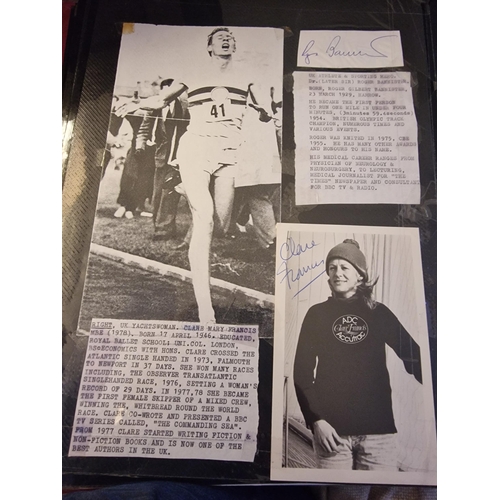 Roger Bannister
UK ATHLETE & SPORTING HERO.
Dr. (LATER SIR) ROGER BANNISTER.
BORN, ROGER GILBERT BANNISTER,
23 MARCH 1929, HARROW.
HE BECAME THE FIRST PERSON
TO RUN ONE MILE IN UNDER FOUR
MINUTES, (3minutes 59.4seconds)
1954. BRITISH OLYMPIC TRACK
CHAMPION, NUMEROUS TIMES AND
VARIOUS EVENTS.
ROGER WAS KNITED IN 1975, CBE
1955. HE HAS MANY OTHER AWARDS
AND HONOURS TO HIS NAME.
HIS MEDICAL CAREER RANGED FROM
PHYSICIAN OF NEUROLOGY &
NEUROSURGERY, TO LECTURING,
MEDICAL JOURNALIST FOR "THE
TIMES" NEWSPAPER AND CONSULTANT
FOR BBC TV & RADIO.
41
Clare
Francis
ADC
Clare Francis
ACCUTRAC
RIGHT, UK YACHTSWOMAN. CLARE MARY FRANCIS
MBE (1978). BORN 17 APRIL 1946. EDUCATED,
ROYAL BALLET SCHOOL: UNI.COL. LONDON,
BScECONOMICS WITH HONS. CLARE CROSSED THE
ATLANTIC SINGLE HANDED IN 1973, FALMOUTH
TO NEWPORT IN 37 DAYS. SHE WON MANY RACES
INCLUDING, THE OBSERVER TRANSATLANTIC
SINGLEHANDED RACE, 1976, SETTING A WOMAN'S
RECORD OF 29 DAYS. IN 1977,78 SHE BECAME
THE FIRST FEMALE SKIPPER OF A MIXED CREW,
WINNING THE, WHITBREAD ROUND THE WORLD
RACE. CLARE CO-WROTE AND PRESENTED A BBC
TV SERIES CALLED, "THE COMMANDING SEA".
FROM 1977 CLARE STARTED WRITING FICTION &
NON-FICTION BOOKS AND IS NOW ONE OF THE
BEST AUTHORS IN THE UK.